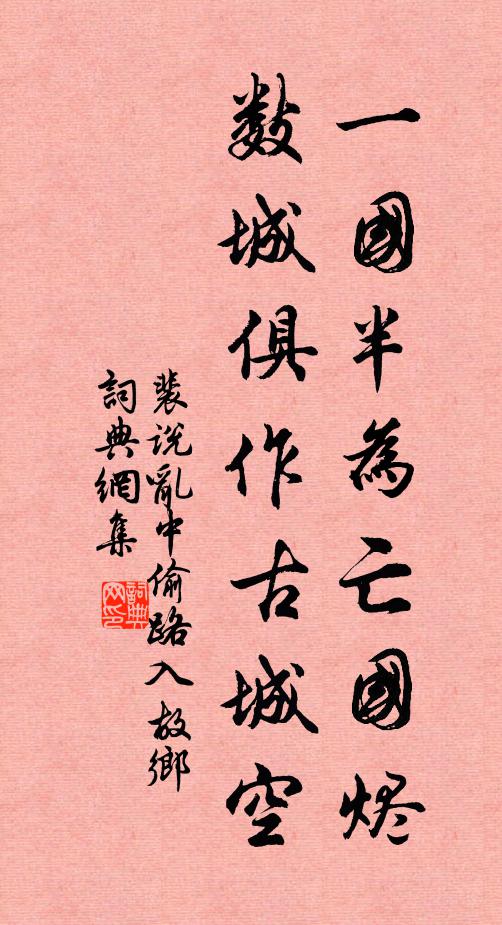 一國半為亡國烬
数城俱作古城空
裴说亂中偷路入故鄉
詞典網集
詞典网印